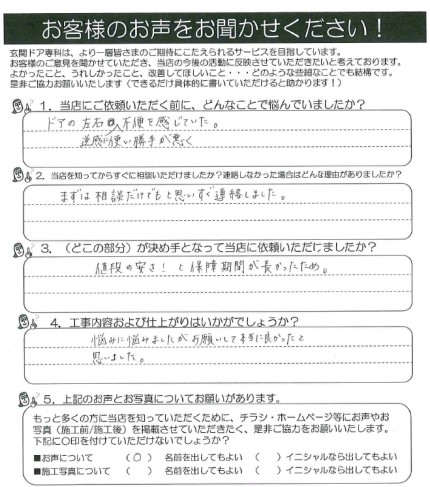 お客様のお声をお聞かせください！
玄関ドア専科は、より一層皆さまのご期待にこたえられるサービスを目指しています。
お客様のご意見を聞かせていただき、当店の今後の活動に反映させていただきたいと考えております。
よかったこと、うれしかったこと、改善してほしいこと・・・どのような些細なことでも結構です。
是非ご協力お願いいたします（できるだけ具体的に書いていただけると助かります！）
1．当店にご依頼いただく前に、どんなことで悩んでいましたか？
ドアの左右 不便を感じていた。
逆感 使い勝手が悪く
2．当店を知ってからすぐに相談いただけましたか？連絡しなかった場合はどんな理由がありましたか？
まずは相談だけでもと思いすぐ連絡しました。
3．（どこの部分）が決め手となって当店に依頼いただけましたか？
値段の安さ！と保障期間が長かったため。
4．工事内容および仕上がりはいかがでしょうか？
悩みに悩みましたがお願いして本当に良かったと
思いました。
5．上記のお声とお写真についてお願いがあります。
もっと多くの方に当店を知っていただくために、チラシ・ホームページ等にお声やお
写真（施工前/施工後）を掲載させていただきたく、是非ご協力をお願いいたします。
下記に〇印を付けていただけないでしょうか？
■お声について （〇） 名前を出してもよい （ ）イニシャルなら出してもよい
■施工写真について （ ） 名前を出してもよい （ ）イニシャルなら出してもよい